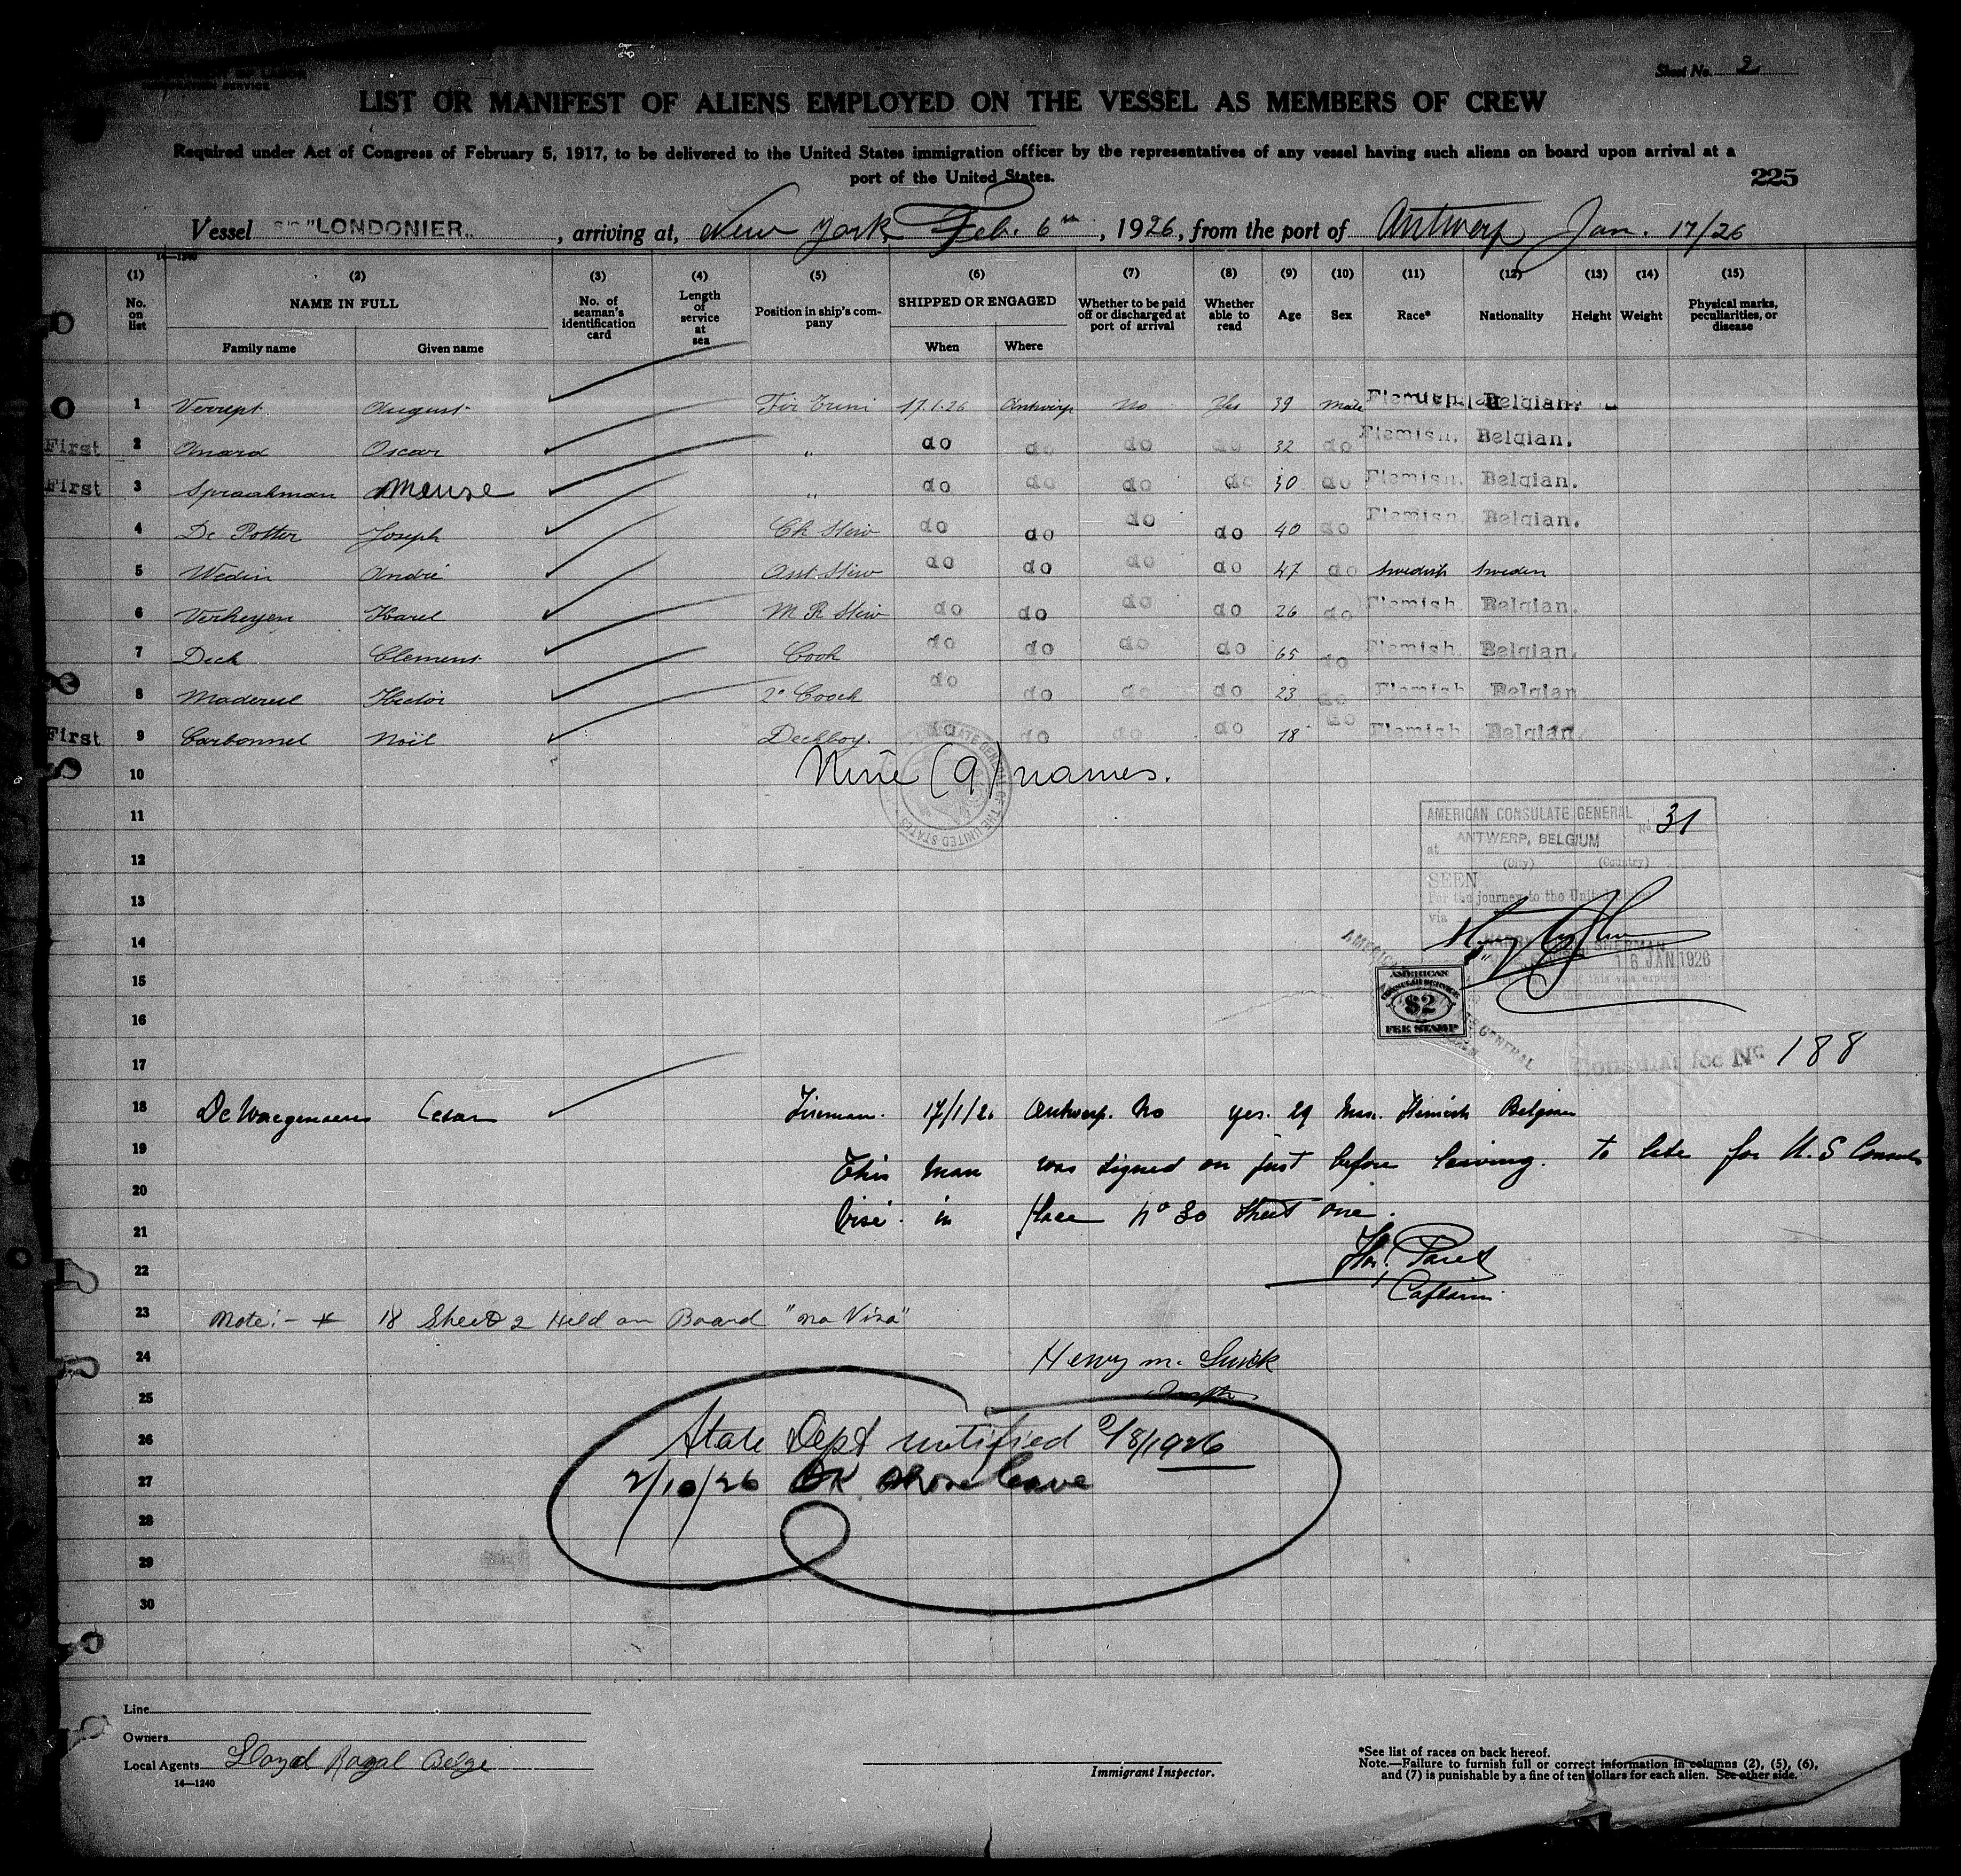 Sheet No. 2
LIST OR MANIFEST OF ALIENS EMPLOYED ON THE VESSEL AS MEMBERS OF CREW
Required under Act of Congress of February 5, 1917, to be delivered to the United States immigration officer by the representatives of any vessel having such aliens on board upon arrival at a
port of the United States.
225
Vessel S/S "LONDONIER", arriving at, New York Feb. 6th, 1926, from the port of Antwerp Jan. 17/26
14—1240
(1) (2) (3) (4) (5) (6) (7) (8) (9) (10) (11) (12) (13) (14) (15)
No. on list NAME IN FULL No. of seaman's identification card Length of service at sea Position in ship's company SHIPPED OR ENGAGED Whether to be paid off or discharged at port of arrival Whether able to read Age Sex Race* Nationality Height Weight Physical marks, peculiarities, or disease
Family name Given name When Where
1 Verrept August 17.1.26 Antwerp No Yes 39 Male Belgian.
First 2 Anard Oscar " do do do do 32 do Flemish. Belgian.
First 3 Spraakman " do do do do 30 do Flemish. Belgian.
4 De Potter Joseph Ch Stew do do do do 40 do Flemish. Belgian.
5 Wedin André Ast. Stew do do do do 47 do Swedish Sweden
6 Verheyen Karel M R Stew do do do do 26 do Flemish. Belgian.
7 Deck Clement Cook do do do do 65 do Flemish. Belgian.
8 Hector 2° Coock do do do do 23 do Flemish Belgian
First 9 Carbonnel Noël Deckboy. do do do do 18 do Flemish Belgian.
10 Nine (9) names.
11
AMERICAN CONSULATE GENERAL No. 31
at ANTWERP, BELGIUM
(City) (Country)
12
SEEN
For the journey to the United States
13
via
14
HARRY SHERMAN
16 JAN 1926
15
AMERICAN
CONSULAR SERVICE
$2
FEE STAMP
16
17
Consular fee No 188
18 Cesar Fireman. 17/1/26 Antwerp. No yes. 29 Flemish Belgian
19 This man was signed on just before leaving. to late for U.S Consuls
20 Visé. in place n° 30 sheet one.
21
22 Captain
23 Note:- # 18 Sheet 2 Held on Board "no Visa"
24 Henry M.
25
26 State Dept notified 2/8/1926
27 2/10/26 OK shore leave
28
29
30
Line
Owners
Local Agents Lloyd Royal Belge
14—1240
Immigrant Inspector.
*See list of races on back hereof.
Note.—Failure to furnish full or correct information in columns (2), (5), (6),
and (7) is punishable by a fine of ten dollars for each alien. See other side.